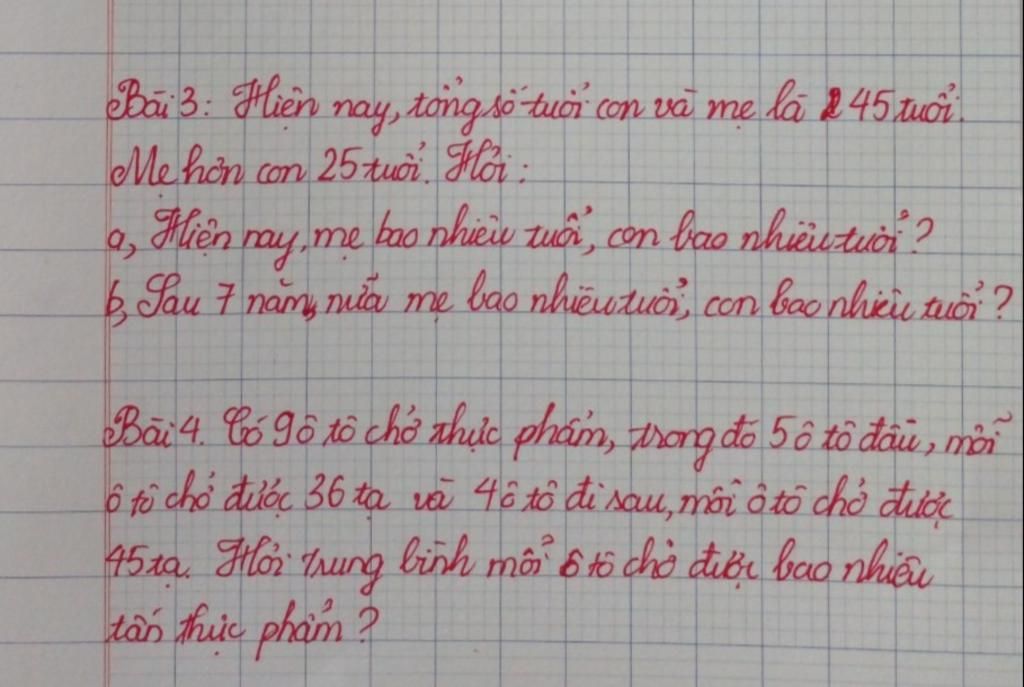 Bài 3: Hiện nay, tổng số tuổi con và mẹ là 45 tuổi.
Mẹ hơn con 25 tuổi. Hỏi:
a, Hiện nay, mẹ bao nhiêu tuổi, con bao nhiêu tuổi?
b, Sau 7 năm nữa mẹ bao nhiêu tuổi, con bao nhiêu tuổi?
Bài 4. Có 9 ô tô chở thực phẩm, trong đó 5 ô tô đầu, mỗi
ô tô chở được 36 tạ và 4 ô tô đi sau, mỗi ô tô chở được
45 tạ. Hỏi trung bình mỗi ô tô chở được bao nhiêu
tấn thực phẩm?